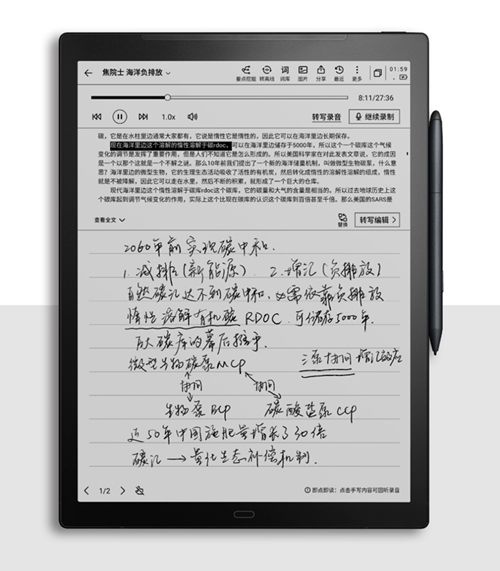 焦院士 海洋负排放
要点挖掘 转离线 词库 图片 分享 最近 更多
01:59
8:11/27:36
1.0x
转写录音
继续录制
碳，它是在水柱里边通常大家都有，它说是惰性它是惰性的，因此它可以在海洋里边长期保存。
现在海洋里边这个溶解的惰性溶解子碳rdoc，可以在海洋里边储存于5000年。所以这一个一个碳库这个气候
变化的调节是发挥了重要作用，但是人们不知道它是怎么形成的。所以美国科学家在对此发表文章说，它的成因
是一个以那个这就是一个不解之谜。那么10年前我们提出了一个新的海洋储量机制，叫做微型生物碳泵，什么意
思？海洋里边的微型生物，它的生理生态活动吸收了活性的有机炭，然后转化成惰性的溶解性溶解的组成，惰性
就是不被降解，因此它可以走在水里，然后不断的积累，就形成了一个巨大的仓库。
现代海洋里边这个惰性溶解子碳rdoc这个碳库，它的碳量和大气的含量是相当的。所以过去地球历史上这
个碳库起到调节气候变化的作用，实际上这个比现在碳库的认识这个碳库到百倍甚至千倍。那么美国的SARS是
查看全文
替换
转写编辑
2060年前实现碳中和.
1.减排(新能源) 2.增汇(负排放)
自然碳汇达不到碳中和，必需依靠负排放
惰性溶解有机碳 RDOC. 可储存5000年.
巨大碳库的幕后推手
微型生物碳泵MCP
三泵协同 增汇效应
协同 协同
生物泵BCP 碳酸盐泵CCP
近50年中国施肥量增长了30倍
碳汇 → 量化生态补偿机制.
1/2
即点即读：点击手写内容可回听录音